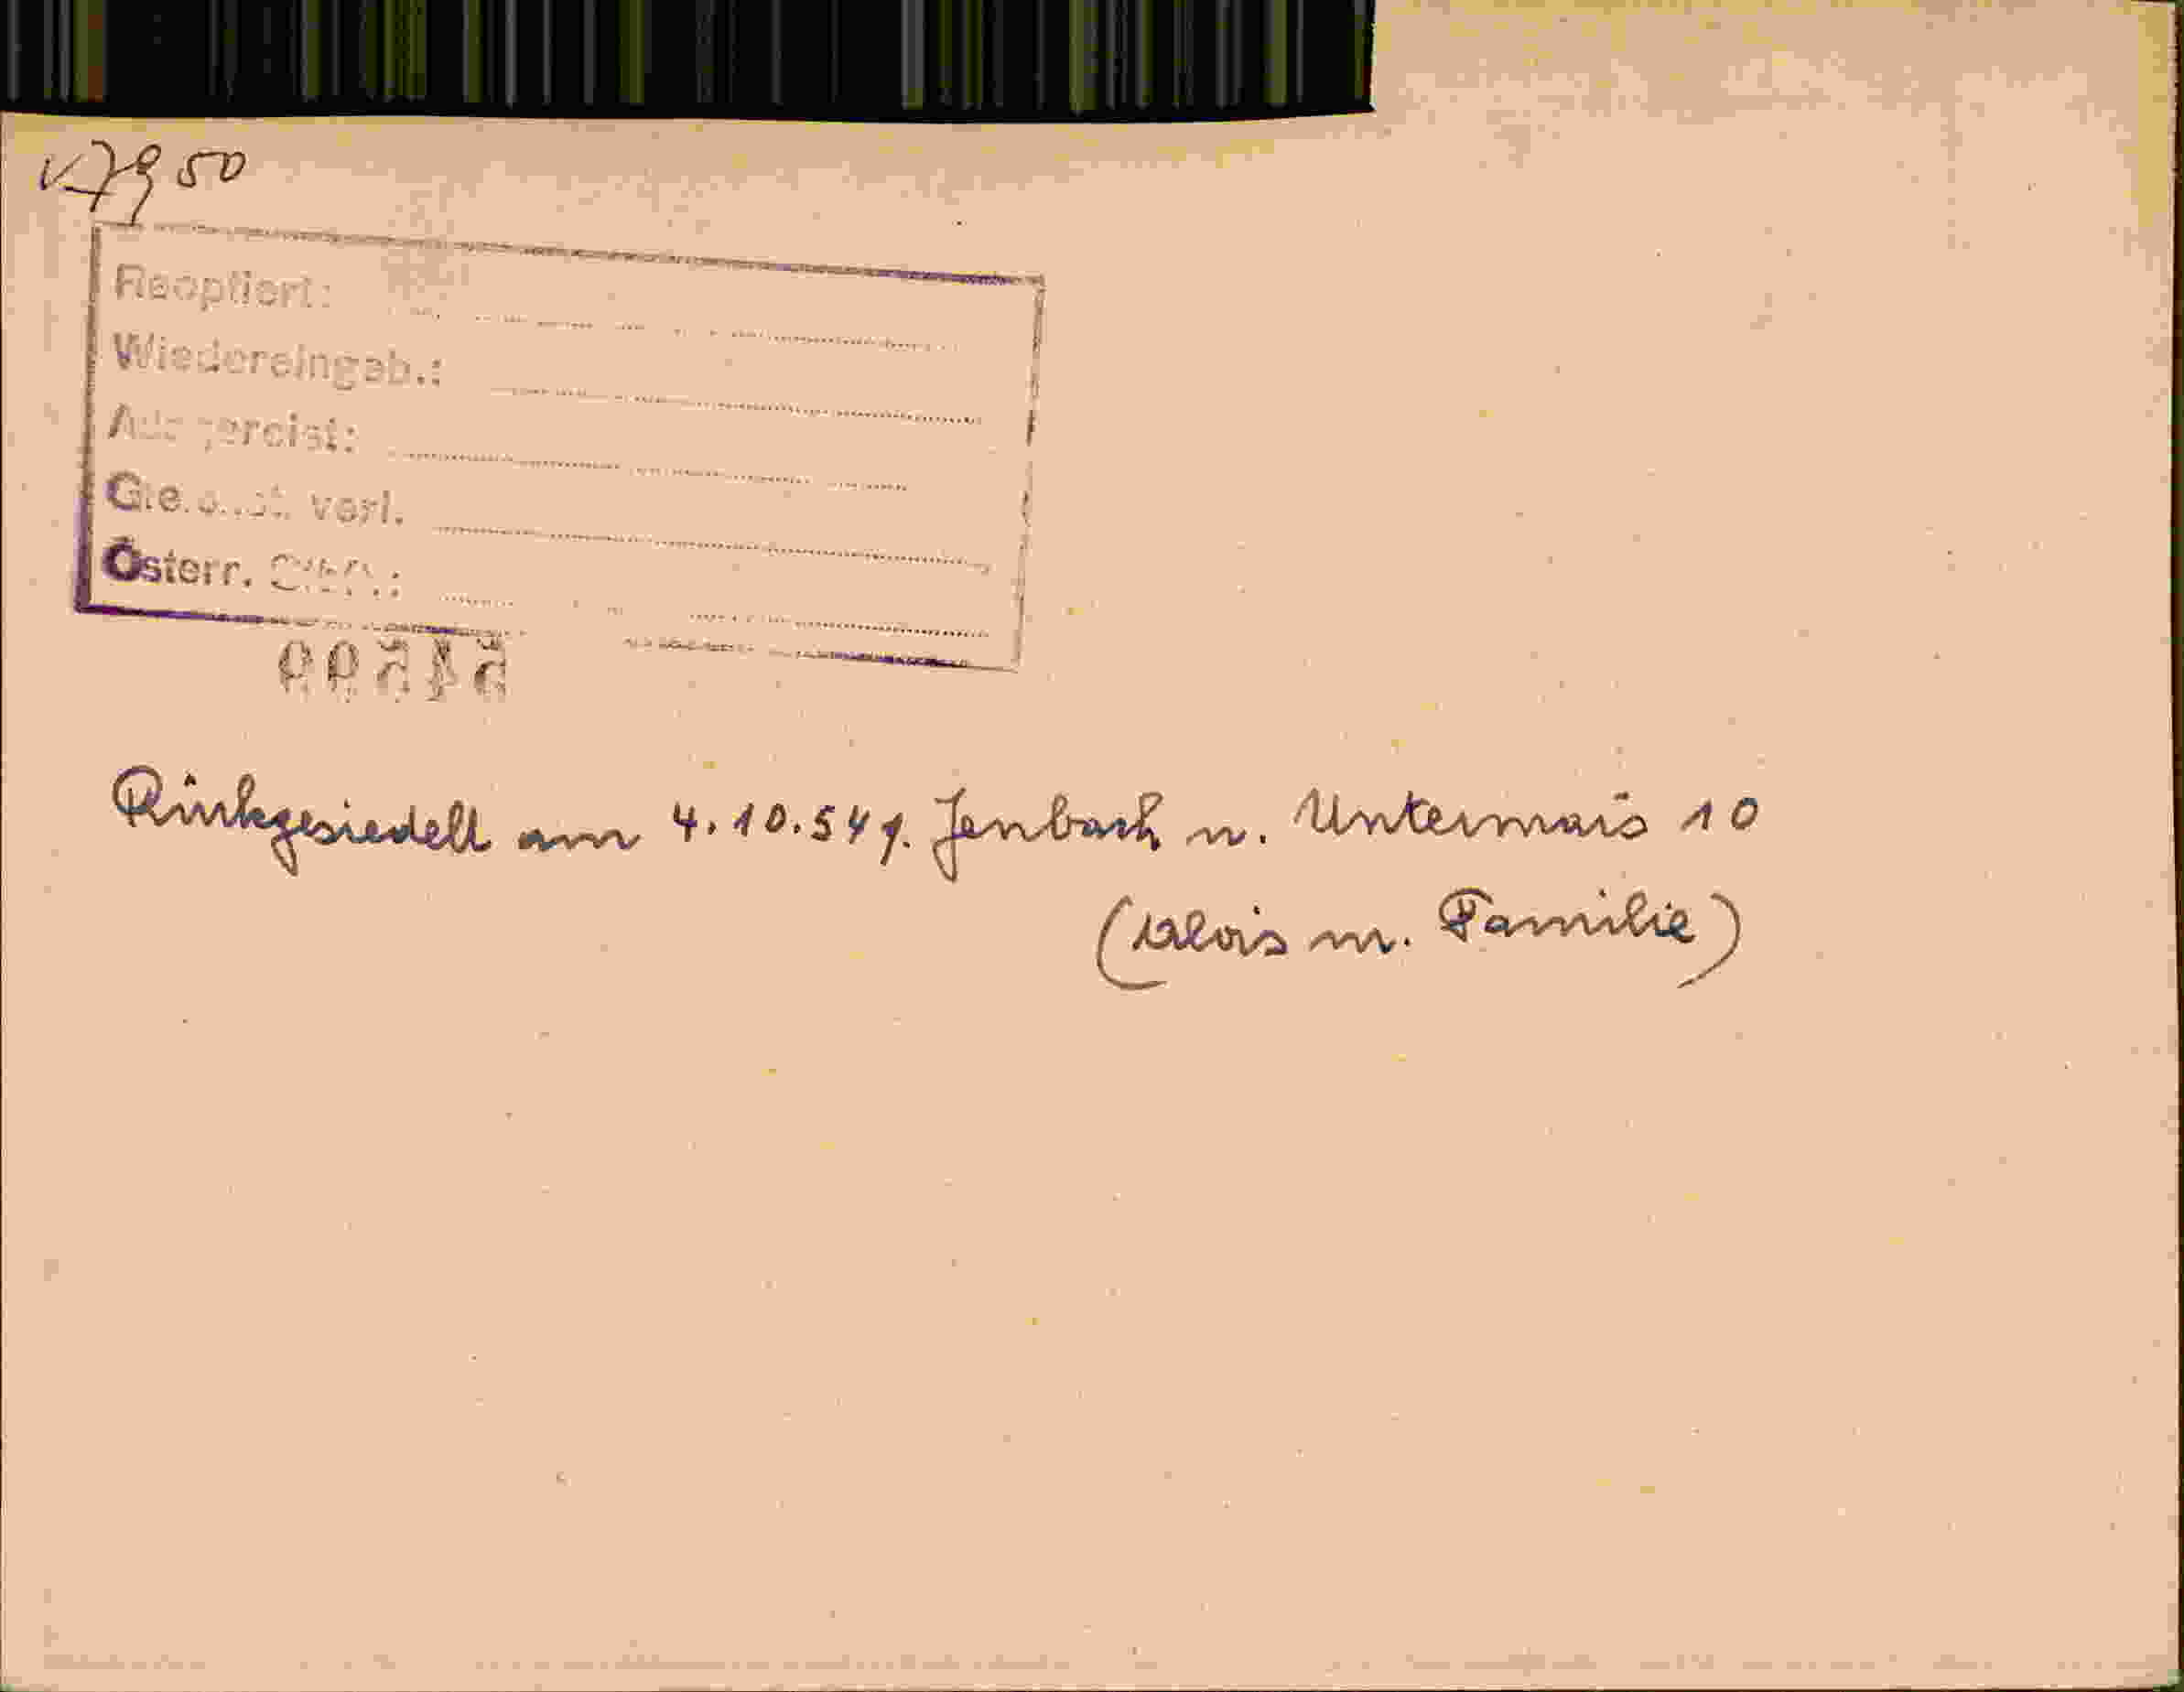 50
Reoptiert:
Wiedereingeb.:
Ausgereist:
verl.
Österr.
Rückgesiedelt am 4.10.54 v. Jenbach n. Untermais 10
(Alois m. Familie)